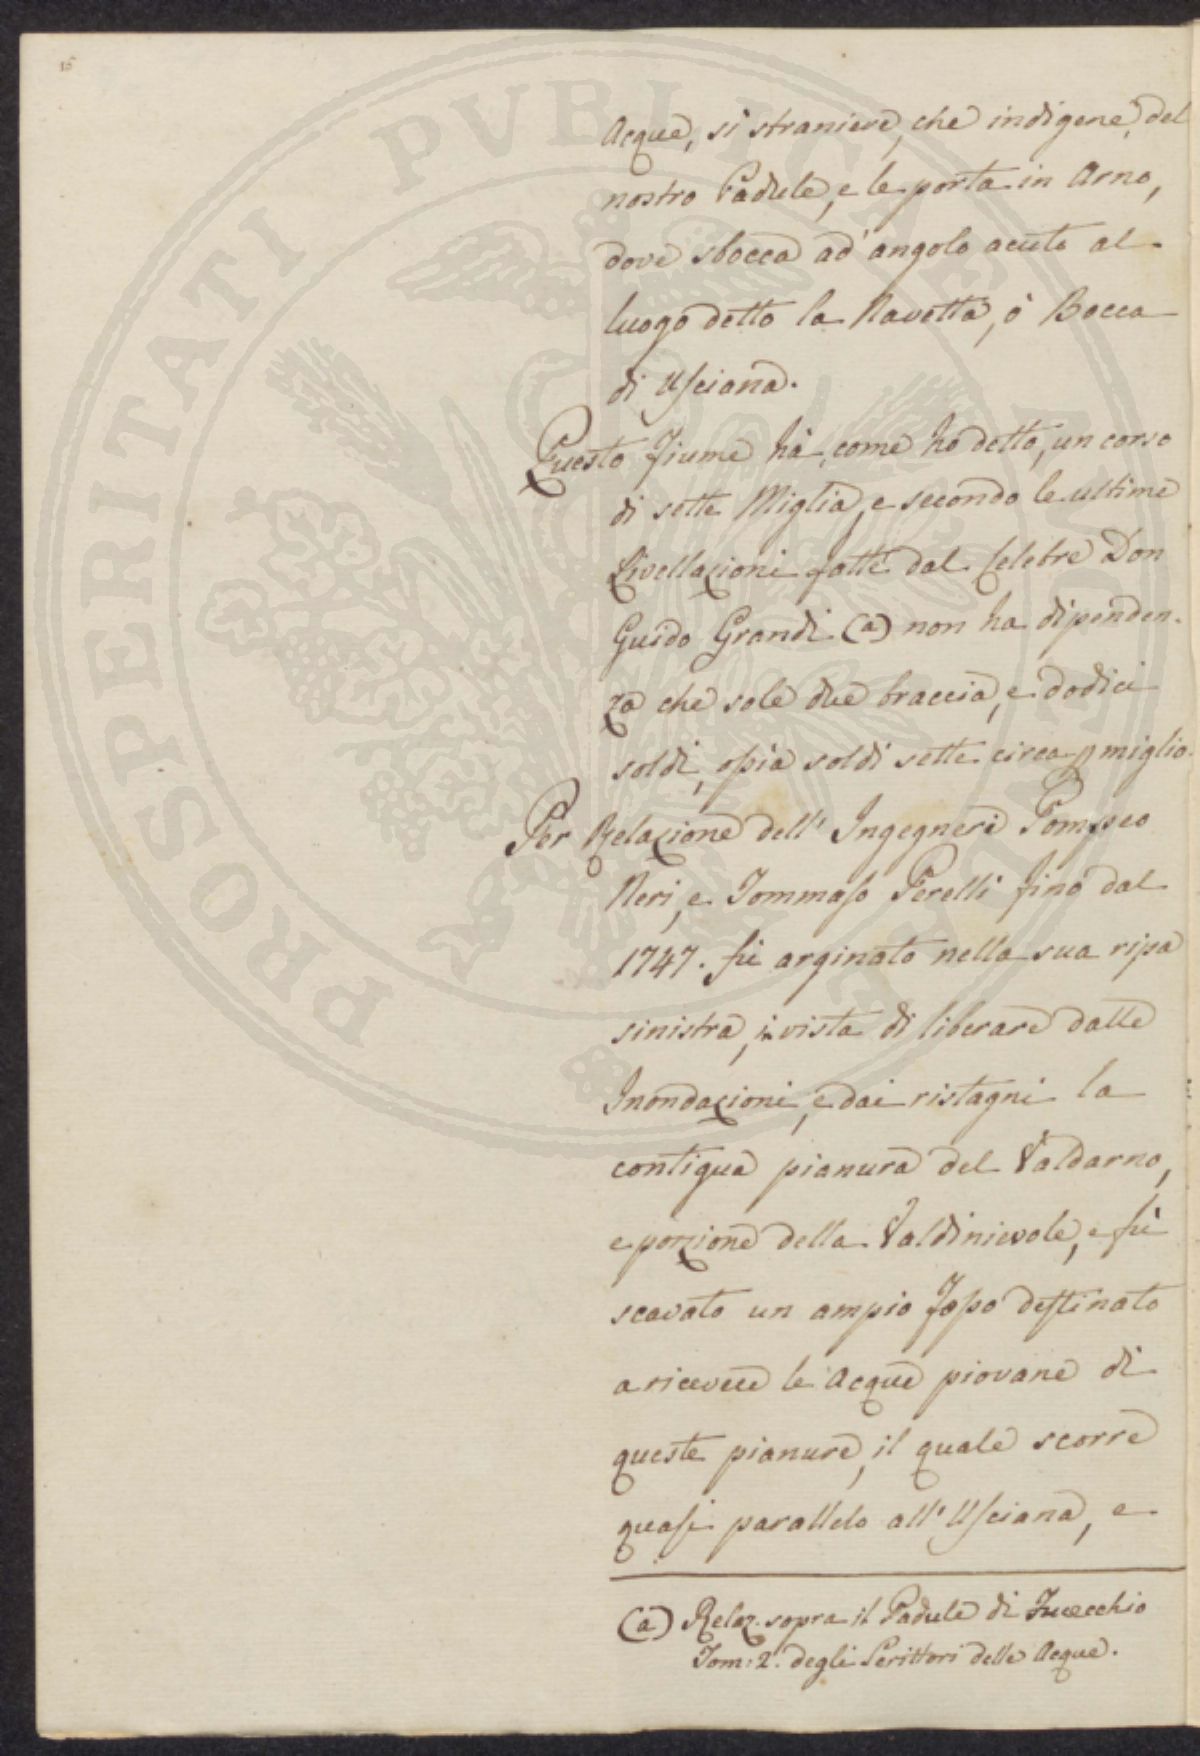 15
PROSPERITATI PVBLICAE AVGENDAE
Acque, sì straniere, che indigene, del
nostro Padule, e le porta in Arno,
dove sbocca ad angolo acuto al
luogo detto la Navetta, ò Bocca
di Usciana.
Questo Fiume hà, come ho detto, un corso
di sette Miglia, e secondo le ultime
Livellazioni fatte dal Celebre Don
Guido Grandi (a) non ha dipenden-
za che sole due braccia, e dodici
soldi, ossia soldi sette circa p miglio.
Per Relazione dell' Ingegneri Pompeo
Neri, e Tommaso Perelli fino dal
1747. fù arginato nella sua ripa
sinistra, in vista di liberare dalle
Inondazioni, e dai ristagni la
contigua pianura del Valdarno,
e porzione della Valdinievole, e fù
scavato un ampio Fosso destinato
a ricevere le Acque piovane di
queste pianure, il quale scorre
quasi parallelo all' Usciana, e
(a) Relaz. sopra il Padule di Fucecchio
Tom: 2. degli Scrittori delle Acque.